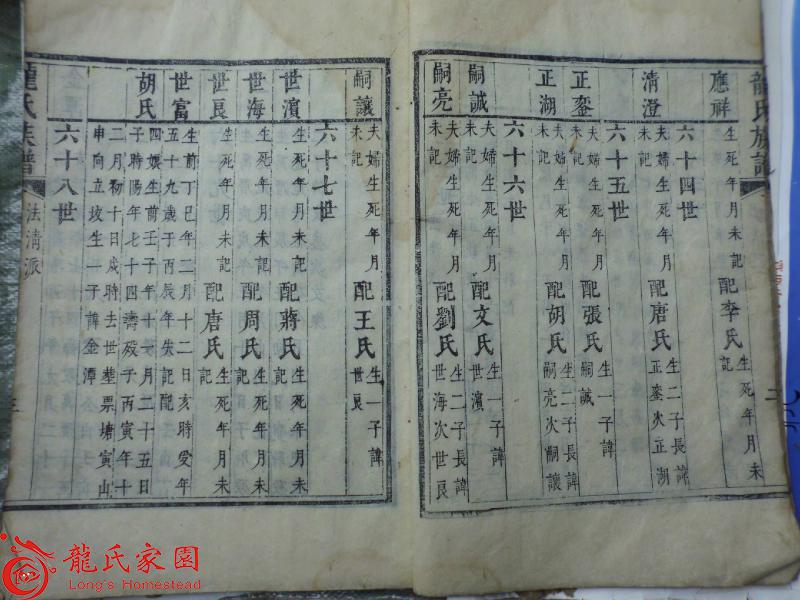 龍氏族譜
二
應祥 配李氏 生死年月未記
六十四世
清澄 夫婦生死年月未記 配唐氏 生二子長諱正鎏次正湖
六十五世
正鎏 夫婦生死年月未記 配張氏 生一子諱嗣誠
正湖 夫婦生死年月未記 配胡氏 生二子長諱嗣亮次嗣讓
六十六世
嗣誠 夫婦生死年月未記 配文氏 生一子諱世濱
嗣亮 夫婦生死年月未記 配劉氏 生二子長諱世海次世良
嗣讓 夫婦生死年月未記 配王氏 生一子諱世良
六十七世
世濱 生死年月未記 配蔣氏 生死年月未記
世海 生死年月未記 配周氏 生死年月未記
世良 生死年月未記 配唐氏 生死年月未記
世富 生前丁巳年二月十二日亥時受年
五十九歲于丙辰年失記配
胡氏 四娘生前壬子年十月二十五日
子時陽年七十四壽歿于丙寅年十
二月初十日戌時去世塟票塘寅山
申向立坟生一子諱金潭
六十八世
龍氏族譜
法清派
三
龍氏家園
Long's Homestead